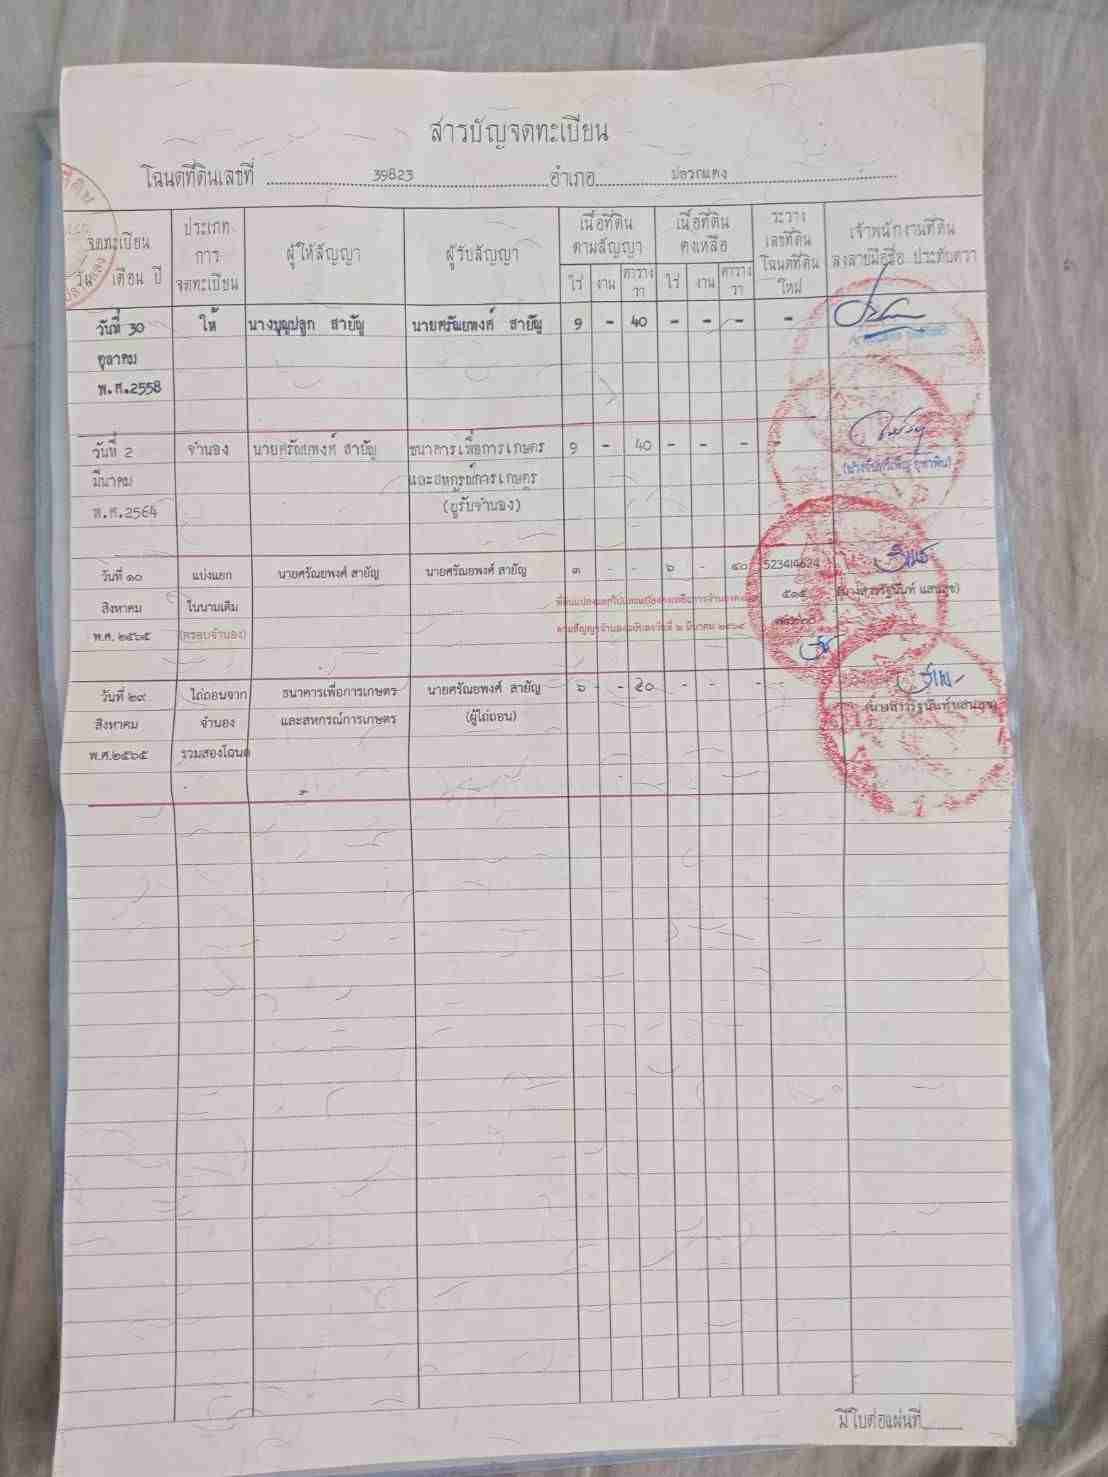 สารบัญจดทะเบียน
โฉนดที่ดินเลขที่ 39823 อำเภอ ปลวกแดง
จดทะเบียน วัน เดือน ปี
ประเภท การ จดทะเบียน
ผู้ให้สัญญา
ผู้รับสัญญา
เนื้อที่ดิน ตามสัญญา
ไร่ งาน ตาราง วา
เนื้อที่ดิน คงเหลือ
ไร่ งาน ตาราง วา
ระวาง เลขที่ดิน โฉนดที่ดิน ใหม่
เจ้าพนักงานที่ดิน ลงลายมือชื่อ ประทับตรา
วันที่ 30 ให้ นางบุญปลูก สายัญ นายศรัณยพงศ์ สายัญ 9 - 40 - - - -
ตุลาคม
พ.ศ.2558
วันที่ 2 จำนอง นายศรัณยพงศ์ สายัญ ธนาคารเพื่อการเกษตร 9 - 40 - - - -
มีนาคม และสหกรณ์การเกษตร
พ.ศ.2564 (ผู้รับจำนอง)
วันที่ ๑๐ แบ่งแยก นายศรัณยพงศ์ สายัญ นายศรัณยพงศ์ สายัญ ๓ - - ๖ - ๔๐ 5234I4624
สิงหาคม ในนามเดิม ๕๑๕
พ.ศ. ๒๕๖๕ (ครอบจำนอง) ตามสัญญาจำนองฉบับลงวันที่ ๒ มีนาคม ๒๕๖๔
วันที่ ๒๙ ไถ่ถอนจาก ธนาคารเพื่อการเกษตร นายศรัณยพงศ์ สายัญ ๖ - ๔๐ - - - -
สิงหาคม จำนอง และสหกรณ์การเกษตร (ผู้ไถ่ถอน)
พ.ศ.๒๕๖๕ รวมสองโฉนด
มีใบต่อแผ่นที่